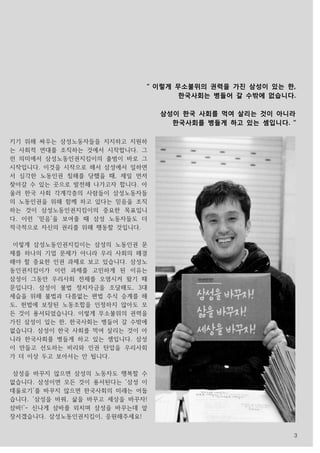 “ 이렇게 무소불위의 권력을 가진 삼성이 있는 한,
한국사회는 병들어 갈 수밖에 없습니다.
삼성이 한국 사회를 먹여 살리는 것이 아니라
한국사회를 병들게 하고 있는 셈입니다. ”
키기 위해 싸우는 삼성노동자들을 지지하고 지원하
는 사회적 연대를 조직하는 것에서 시작합니다. 그
런 의미에서 삼성노동인권지킴이의 출범이 바로 그
시작입니다. 이것을 시작으로 해서 삼성에서 일하면
서 심각한 노동인권 침해를 당했을 때, 제일 먼저
찾아갈 수 있는 곳으로 발전해 나가고자 합니다. 아
울러 한국 사회 각계각층의 사람들이 삼성노동자들
의 노동인권을 위해 함께 하고 있다는 믿음을 조직
하는 것이 삼성노동인권지킴이의 중요한 목표입니
다. 이런 ‘믿음’을 보여줄 때 삼성 노동자들도 더
적극적으로 자신의 권리를 위해 행동할 것입니다.
이렇게 삼성노동인권지킴이는 삼성의 노동인권 문
제를 하나의 기업 문제가 아니라 우리 사회의 해결
해야 할 중요한 인권 과제로 보고 있습니다. 삼성노
동인권지킴이가 이런 과제를 고민하게 된 이유는
삼성이 그동안 우리사회 전체를 오염시켜 왔기 때
문입니다. 삼성이 불법 정치자금을 조달해도, 3대
세습을 위해 불법과 다름없는 편법 주식 승계를 해
도, 헌법에 보장된 노동조합을 인정하지 않아도 모
든 것이 용서되었습니다. 이렇게 무소불위의 권력을
가진 삼성이 있는 한, 한국사회는 병들어 갈 수밖에
없습니다. 삼성이 한국 사회를 먹여 살리는 것이 아
니라 한국사회를 병들게 하고 있는 셈입니다. 삼성
이 만들고 선도하는 비리와 인권 탄압을 우리사회
가 더 이상 두고 보아서는 안 됩니다.
삼성을 바꾸지 않으면 삼성의 노동자도 행복할 수
없습니다. 삼성이면 모든 것이 용서된다는 ‘삼성 이
데올로기’를 바꾸지 않으면 한국사회의 미래는 어둡
습니다. ‘삼성을 바꿔, 삶을 바꾸고 세상을 바꾸자!
삼바!’~ 신나게 삼바를 외치며 삼성을 바꾸는데 앞
장서겠습니다. 삼성노동인권지킴이, 응원해주세요!
삼성을 바꾸자!
삶을 바꾸자!
세상을 바꾸자!
3